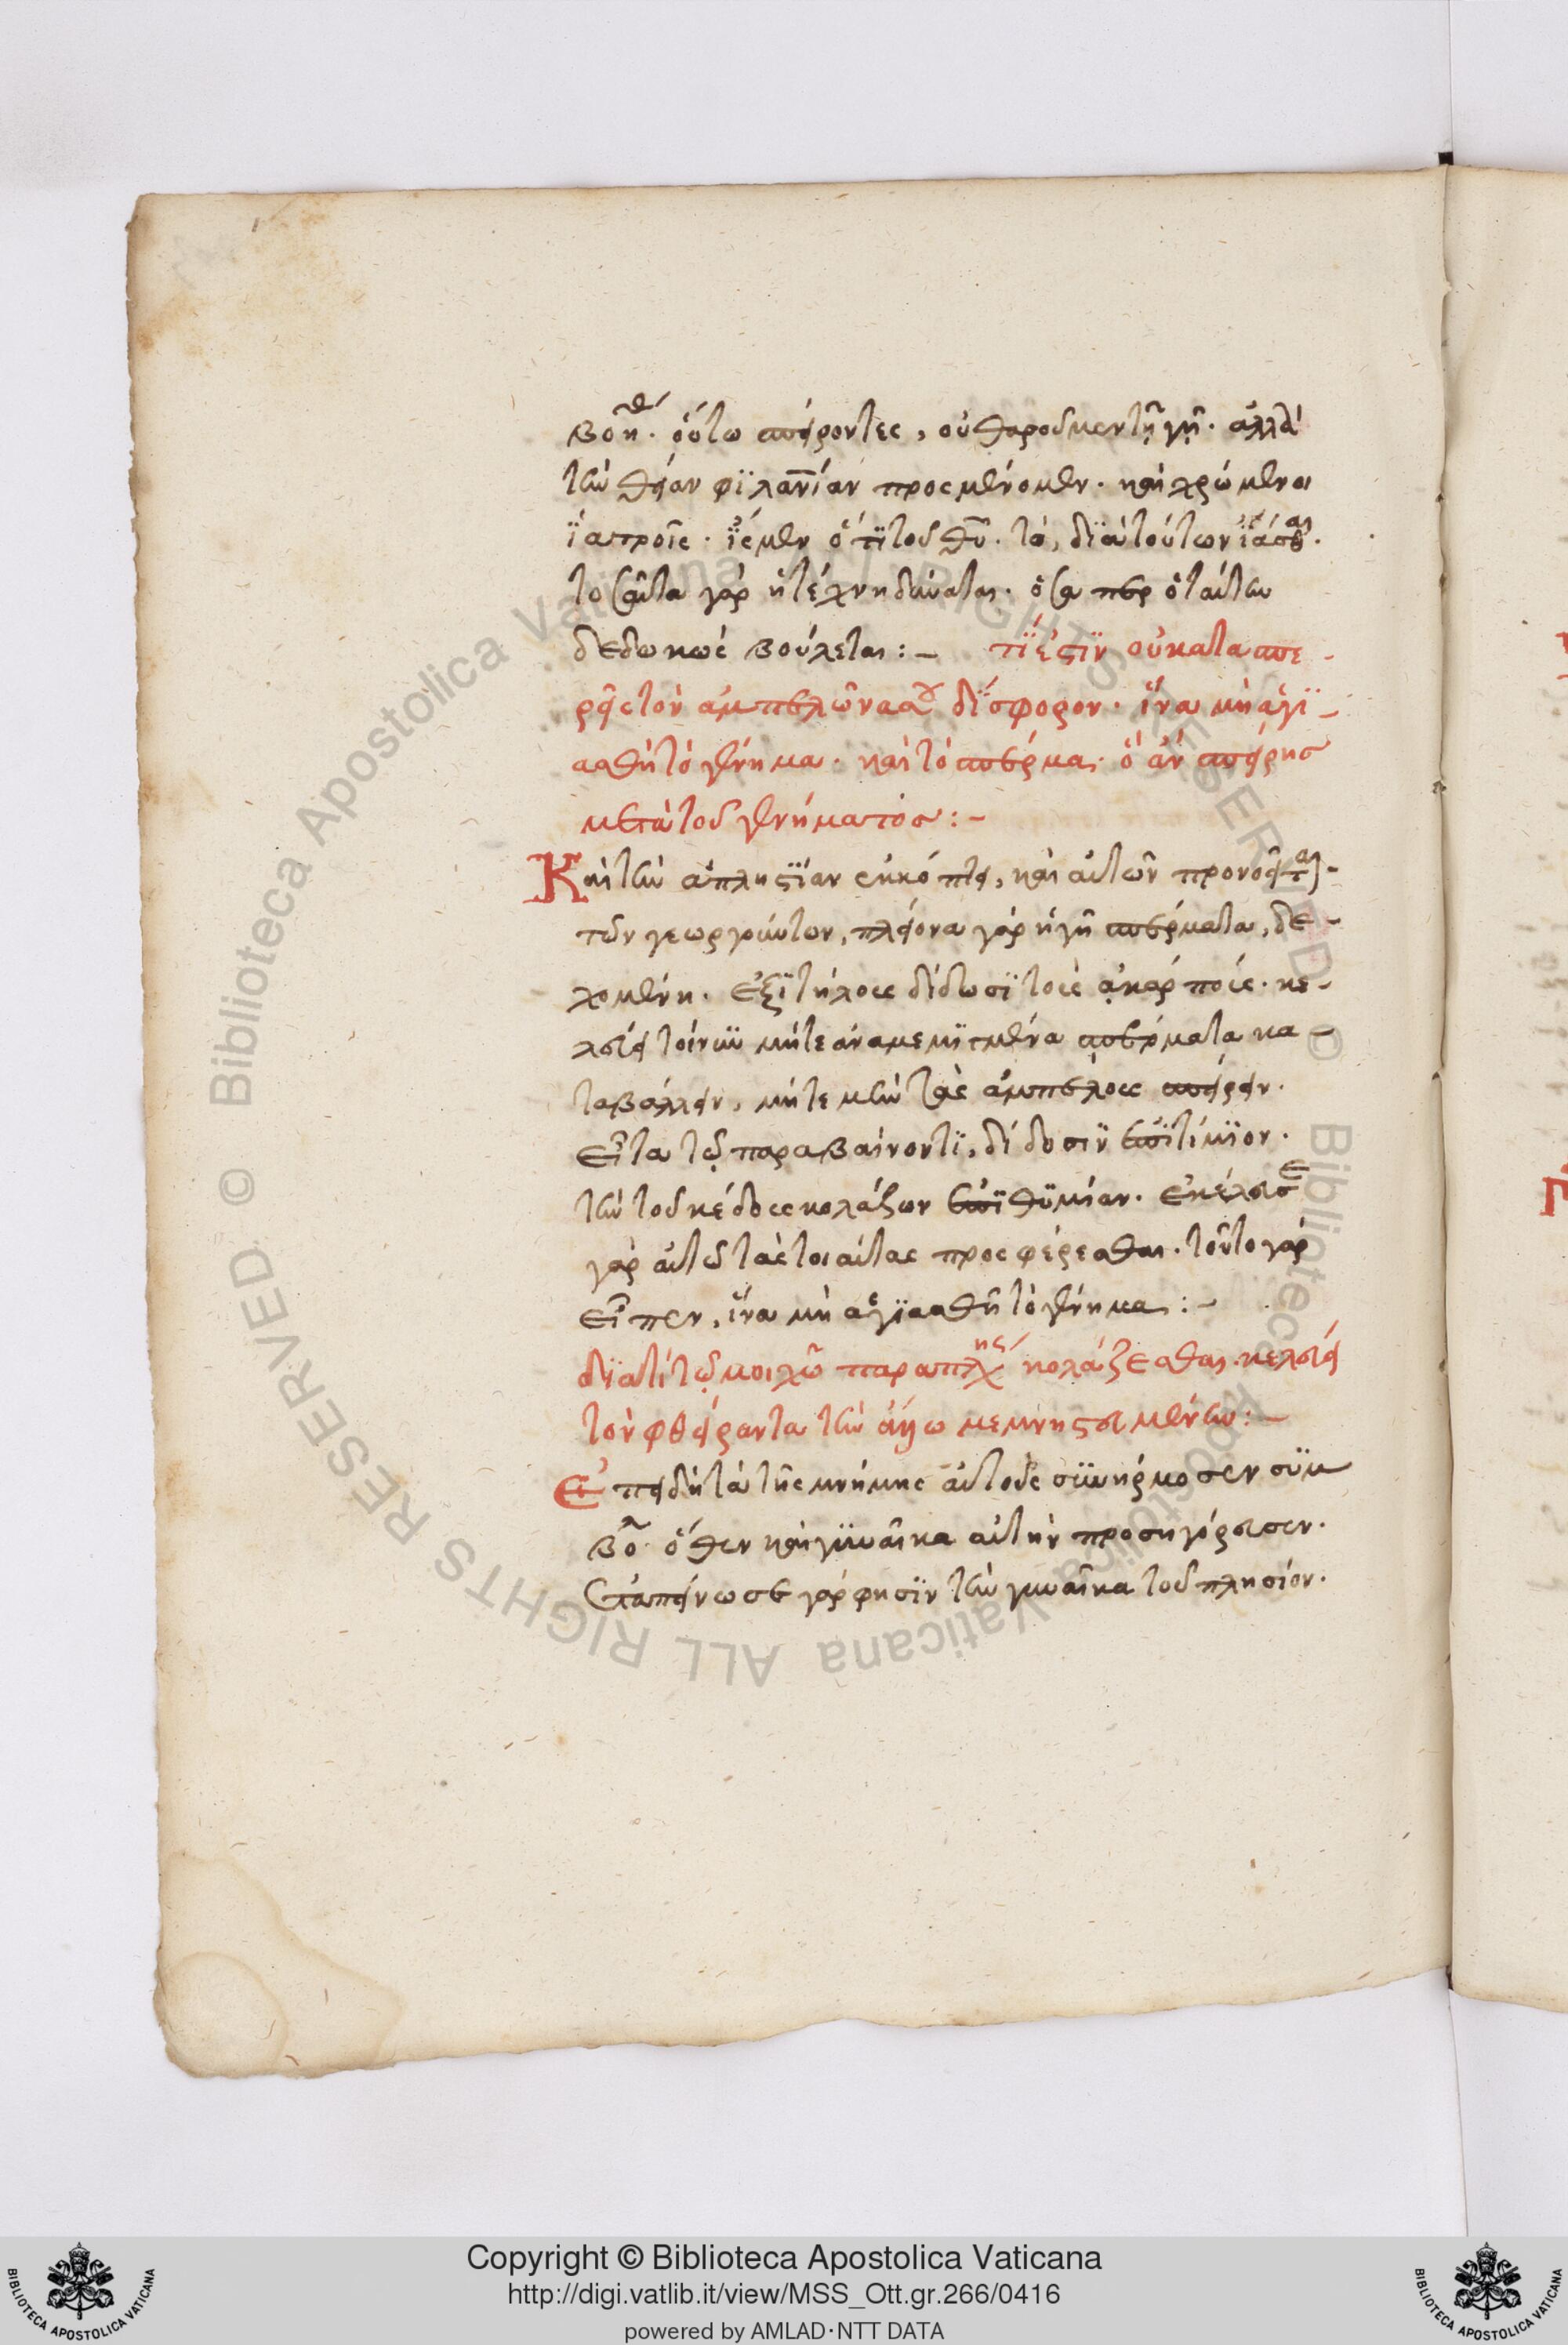 βοή^θ. οὕτω σπείροντες, οὐ θαρροῦμεν τῇ γῇ. ἀλλὰ
τὴν θείαν φιλανίαν προσμένομεν. καὶ χρώμενοι
ἰατροῖς. ἴσμεν ὅτι τοῦ θυ. τὸ, διὰ τούτων ἰάσασθαι.
τοσαῦτα γὰρ ἡ τέχνη δύναται. ὅσα περ ὁ ταύτην
δεδωκὼς βούλεται :– τί ἐστιν οὐ κατασπε-
ρεῖς τὸν ἀμπελῶνα σου δίσφορον. ἵνα μὴ ἁγι-
ασθῇ τὸ γένημα. καὶ τὸ σπέρμα. ὃ ἂν σπείρης
μετὰ τοῦ γενήματος :–
Καὶ τὴν ἀπληστίαν ἐκκόπτει, καὶ αὐτῶν προνοεῖται.
τῶν γεωργούντων, πλείονα γὰρ ἡ γῆ σπέρματα, δε-
χομένη. ἐξιτήλους δίδωσι τοὺς καρπούς. κε-
λεύει τοίνυν μήτε ἀναμεμιγμένα σπέρματα κα-
ταβάλλειν, μήτε μὴν τὰς ἀμπέλους σπείρειν.
εἶτα τῷ παραβαίνοντι, δίδωσιν ἐπιτίμιον.
τὴν τοῦ κέρδους κολάζων ἐπιθυμίαν. ἐκέλευσε
γὰρ αὐτῶ τὰς τοιαύτας προσφέρεσθαι. τοῦτο γὰρ
εἶπεν, ἵνα μὴ ἁγιασθῇ τὸ γένημα :–
διατί τῷ μοιχῷ παραπλ^ης κολάζεσθαι κελεύει
τὸν φθείραντα τὴν ἄλλω μεμνηστευμένην :–
Ἐπειδὴ τὰ τῆς μνήμης αὐτοὺς συνήρμοσεν σύμ
βο. ὅθεν καὶ γυναῖκα αὐτὴν προσηγόρευσεν.
ἐταπείνωσε γάρ φησιν τὴν γυναῖκα τοῦ πλησίον.
Copyright © Biblioteca Apostolica Vaticana
http://digi.vatlib.it/view/MSS_Ott.gr.266/0416
powered by AMLAD·NTT DATA